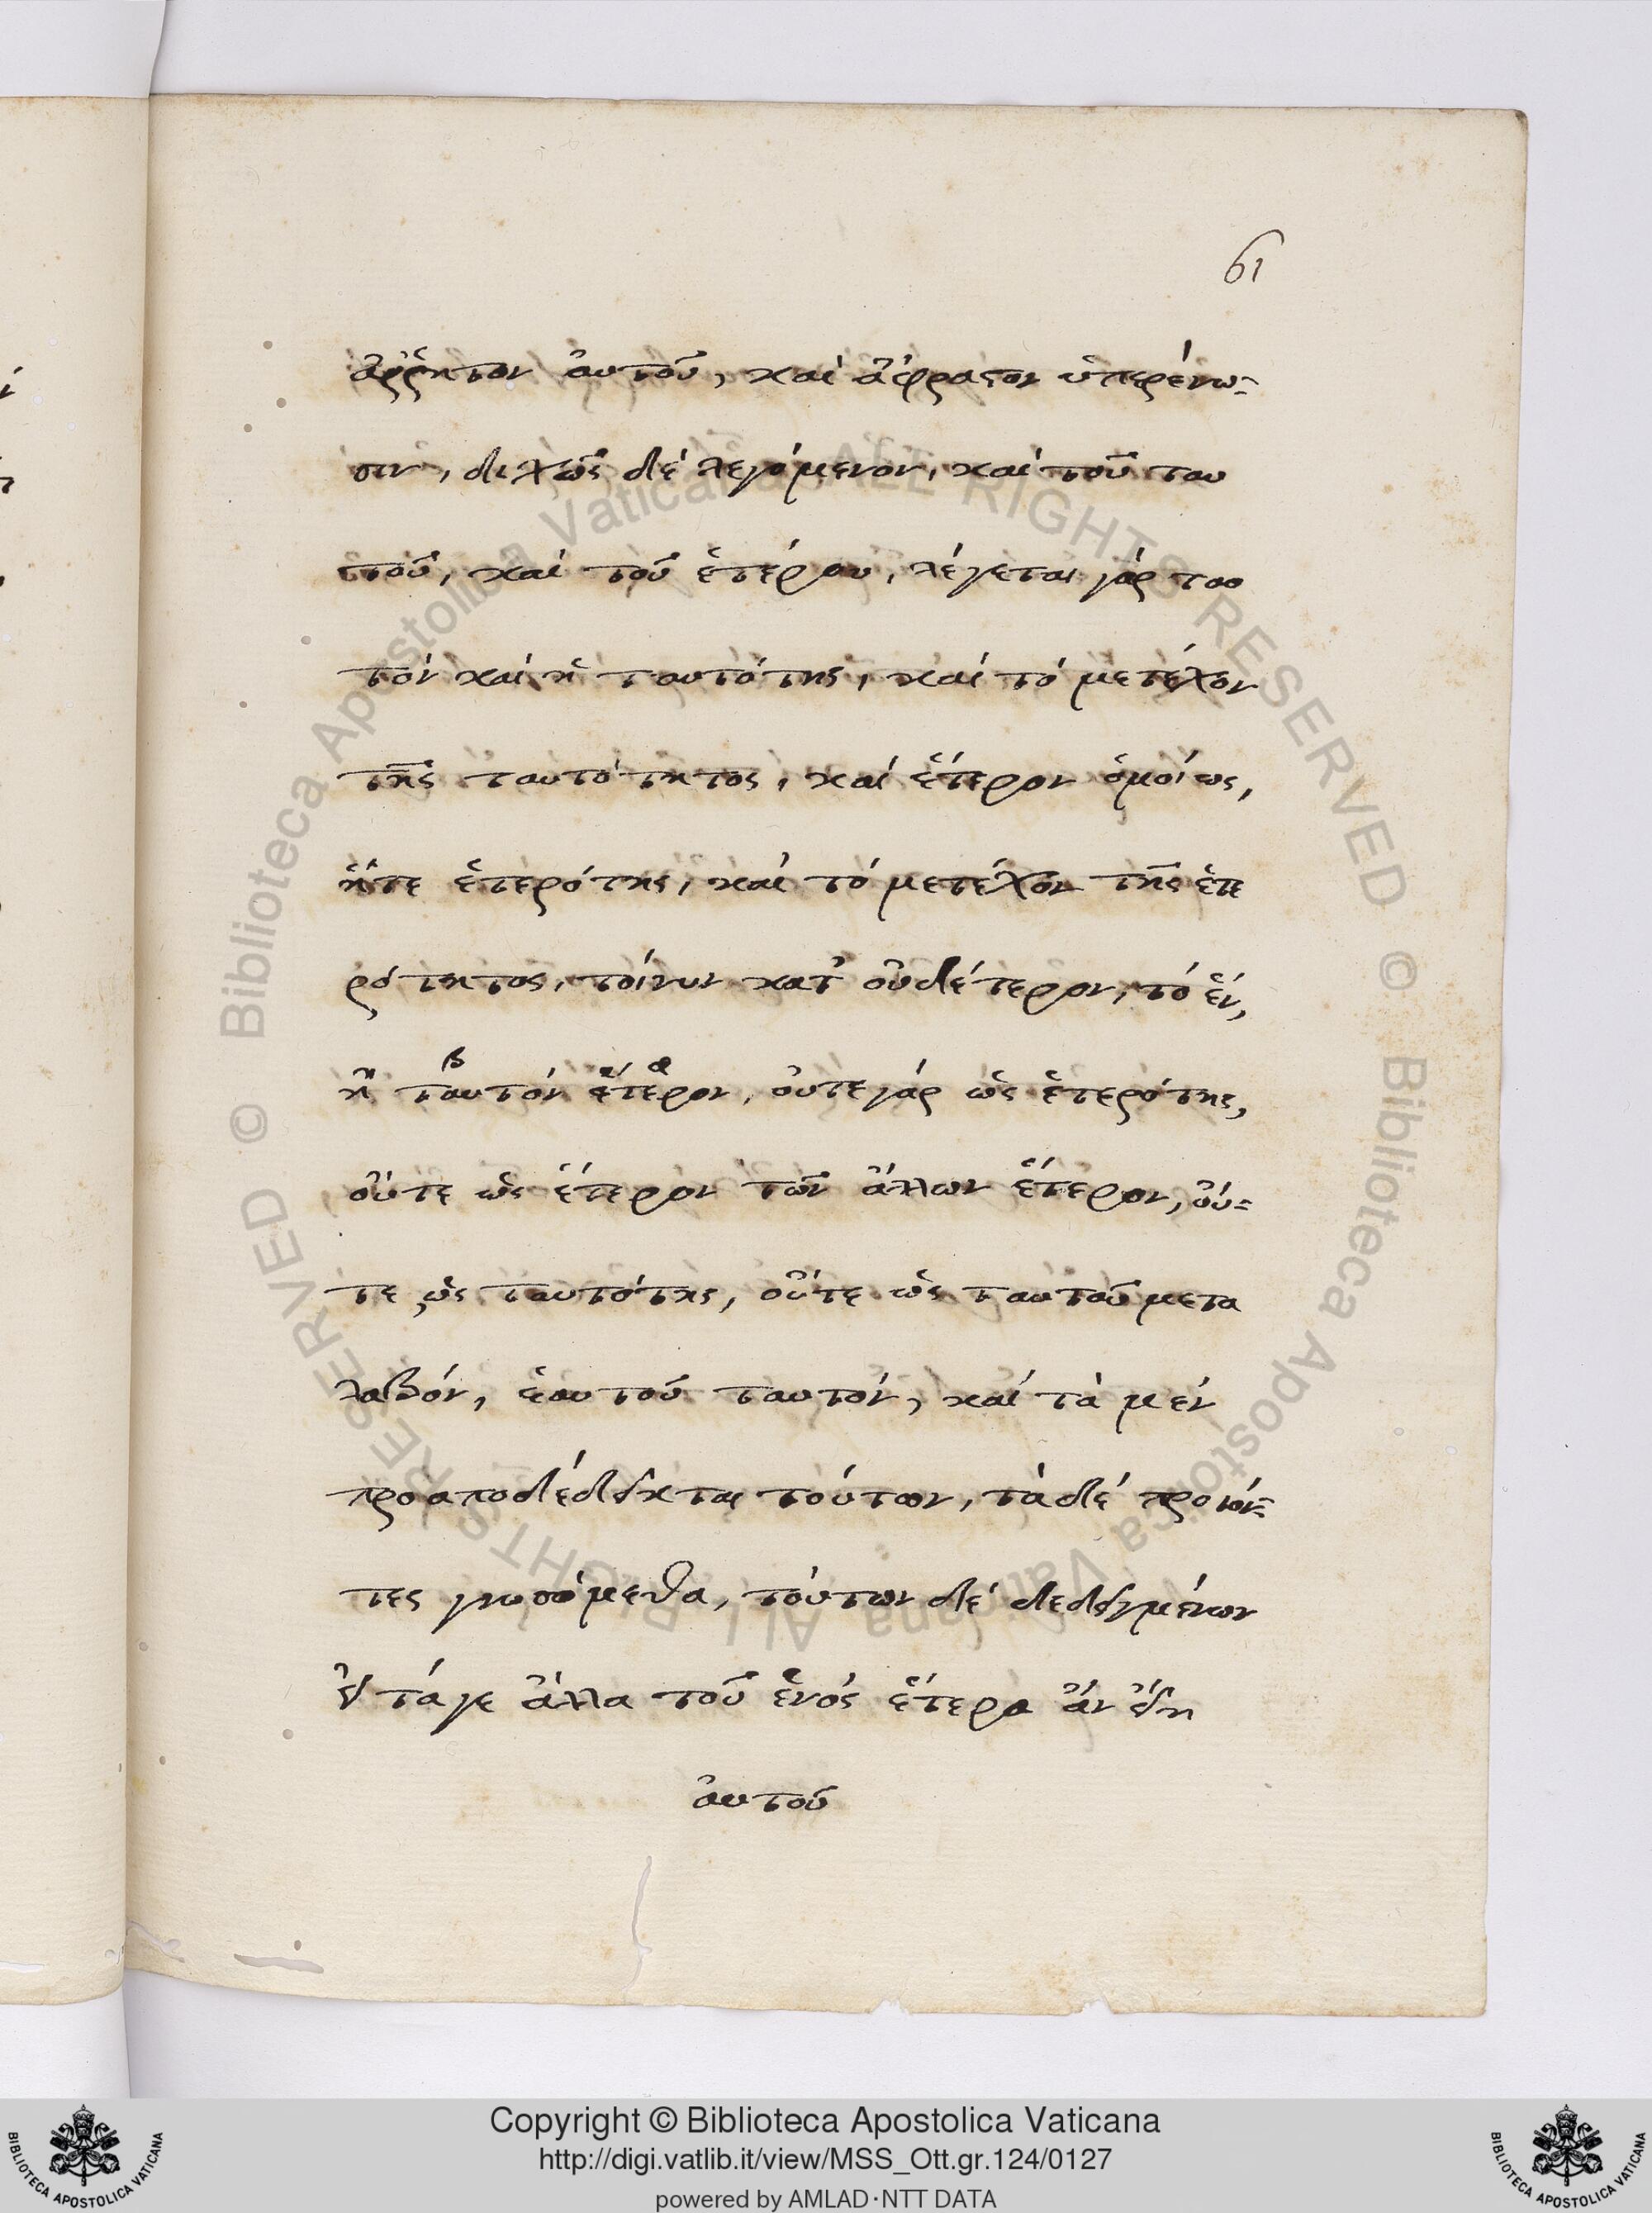 61
ἄῤῥητον αὐτοῦ, καὶ ἄφραστον ὑπερένω-
σιν, διχῶς δὲ λεγόμενον, καὶ τοῦ ταυ
τοῦ, καὶ τοῦ ἑτέρου, λέγεται γάρ ταυ
τόν καὶ ἡ ταυτότης, καὶ τό μετέχον
τῆς ταυτότητος, καὶ ἕτερον ὁμοίως,
ἥτε ἑτερότης, καὶ τό μετέχον τῆς ἑτε
ρότητος, τοίνυν κατ' οὐδέτερον, τό ἕν,
ἢ ταυτόν ἕτερον, οὔτε γάρ ὡς ἑτερότης,
οὔτε ὡς ἕτερον τῶν ἄλλων ἕτερον, οὔ-
τε ὡς ταυτότης, οὔτε ὡς ταυτοῦ μετα
λαβόν, ἑαυτοῦ ταυτόν, καὶ τὰ μέν
προαποδέδεικται τούτων, τὰ δέ προιόν-
τες γνωσόμεθα, τούτων δέ δεδειγμένων
εἰ τά γε ἄλλα τοῦ ἑνός ἕτερα ἂν εἴη
αὐτοῦ
Copyright © Biblioteca Apostolica Vaticana
http://digi.vatlib.it/view/MSS_Ott.gr.124/0127
powered by AMLAD·NTT DATA
© Biblioteca Apostolica Vaticana ALL RIGHTS RESERVED © Biblioteca Apostolica Vaticana ALL RIGHTS RESERVED
BIBLIOTECA APOSTOLICA VATICANA
BIBLIOTECA APOSTOLICA VATICANA